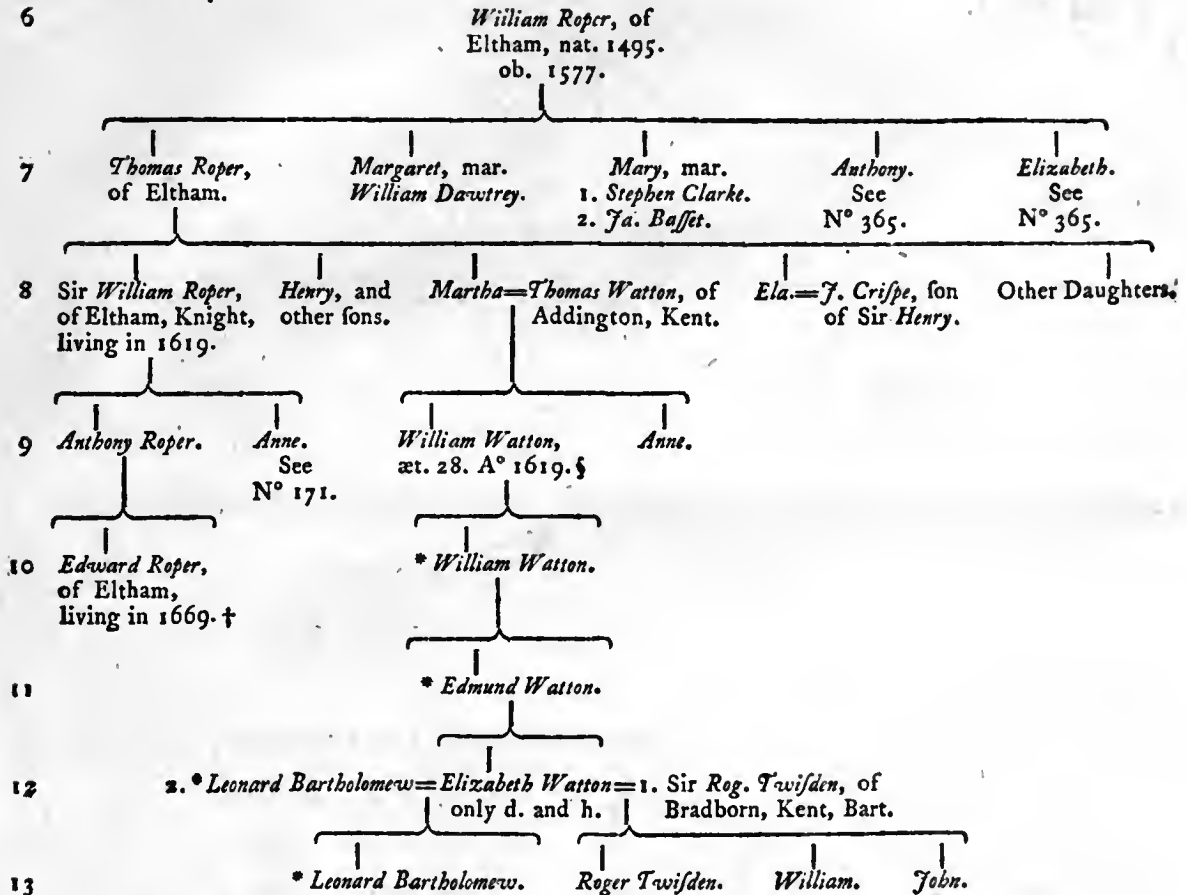 6
William Roper, of
Eltham, nat. 1495.
ob. 1577.
7
Thomas Roper,
of Eltham.
Margaret, mar.
William Dawtrey.
Mary, mar.
1. Stephen Clarke.
2. Ja. Baſſet.
Anthony.
See
N° 365.
Elizabeth.
See
N° 365.
8
Sir William Roper,
of Eltham, Knight,
living in 1619.
Henry, and
other ſons.
Martha=Thomas Watton, of
Addington, Kent.
Ela.=J. Criſpe, ſon
of Sir Henry.
Other Daughters.
9
Anthony Roper.
Anne.
See
N° 171.
William Watton,
æt. 28. A° 1619.§
Anne.
10
Edward Roper,
of Eltham,
living in 1669.†
* William Watton.
11
* Edmund Watton.
12
2. * Leonard Bartholomew=Elizabeth Watton=1. Sir Rog. Twiſden, of
only d. and h.
Bradborn, Kent, Bart.
13
* Leonard Bartholomew.
Roger Twiſden.
William.
John.